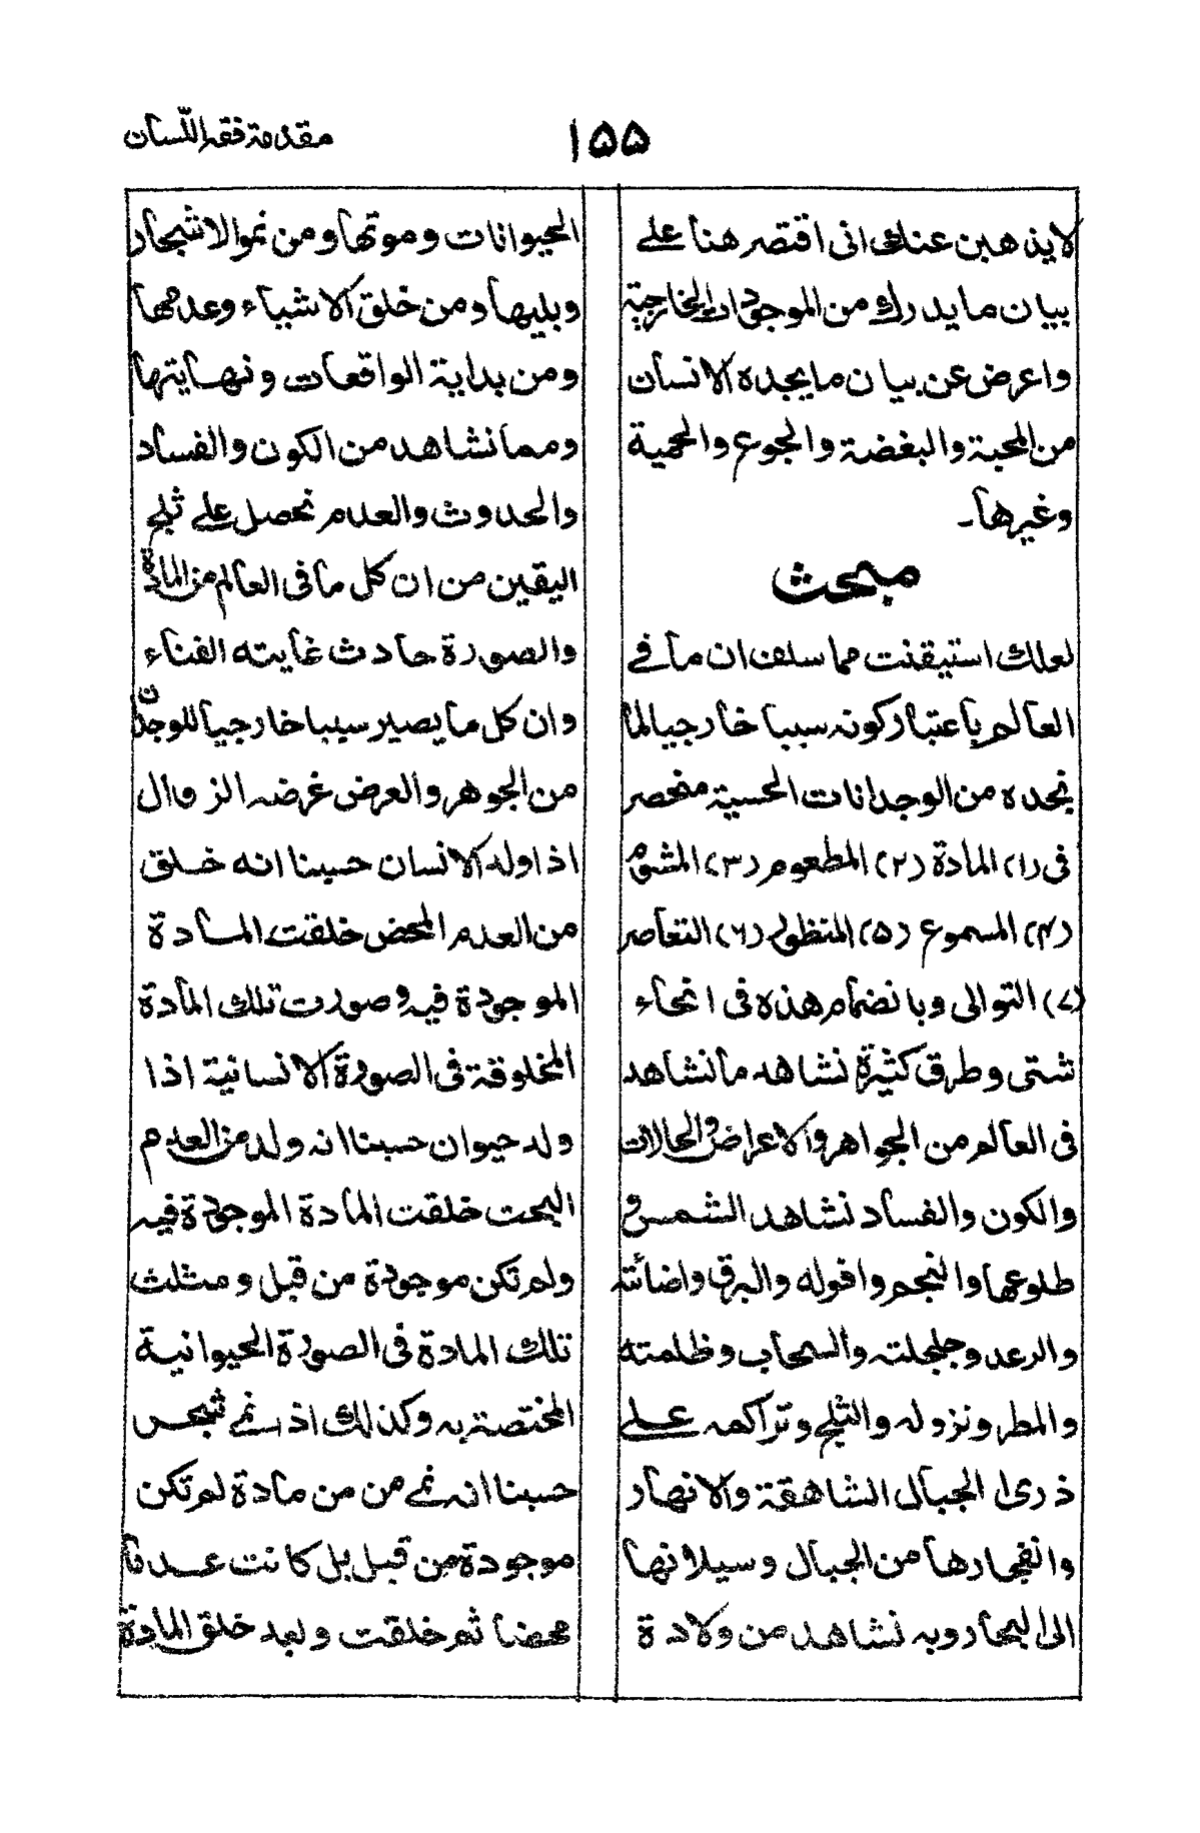 مقدمة فقه اللسان
۱۵۵
لا يذهبن عنك انى اقتصر هنا على
بيان ما يدرك من الموجودات الخارجية
واعرض عن بيان ما يجده الانسان
من المحبة والبغضة والجوع والحمية
وغيرها۔
مبحث
لعلك استيقنت مما سلف ان ما فى
العالم باعتبار كونه سببا خارجيا لما
نجده من الوجدانات الحسية منحصر
فى (۱) المادة (۲) المطعوم (۳) المشموم
(۴) المسموع (۵) المنظور (۶) التعاصر
(۷) التوالى وبانضمام هذه فى انحاء
شتى وطرق كثيرة نشاهد ما نشاهد
فى العالم من الجواهر والاعراض والحالات
والكون والفساد نشاهد الشمس و
طلوعها والنجم وافوله والبرق واضائته
والرعد وجلجلته والسحاب وظلمته
والمطر ونزوله والثلج وتراكمه على
ذرى الجبال الشاهقة والانهار
وانفجارها من الجبال وسيلانها
الى البحار وبه نشاهد من ولادة
الحيوانات وموتها ومن نمو الاشجار
وبليها ومن خلق الاشياء وعدمها
ومن بداية الواقعات ونهايتها
ومما نشاهد من الكون والفساد
والحدوث والعدم نحصل على ثلج
اليقين من ان كل ما فى العالم من المادة
والصورة حادث غايته الفناء
وان كل ما يصير سببا خارجيا للوجدان
من الجوهر والعرض غرضه الزوال
اذا ولد الانسان حسبنا انه خلق
من العدم المحض خلقت المادة
الموجودة فيه وصورت تلك المادة
المخلوقة فى الصورة الانسانية اذا
ولد حيوان حسبنا انه ولد من العدم
البحت خلقت المادة الموجودة فيه
ولم تكن موجودة من قبل ومثلث
تلك المادة فى الصورة الحيوانية
المختصة به وكذلك اذ نمى شجر
حسبنا انه نمى من من مادة لم تكن
موجودة من قبل بل كانت عدما
محضا ثم خلقت وبعد خلق المادة